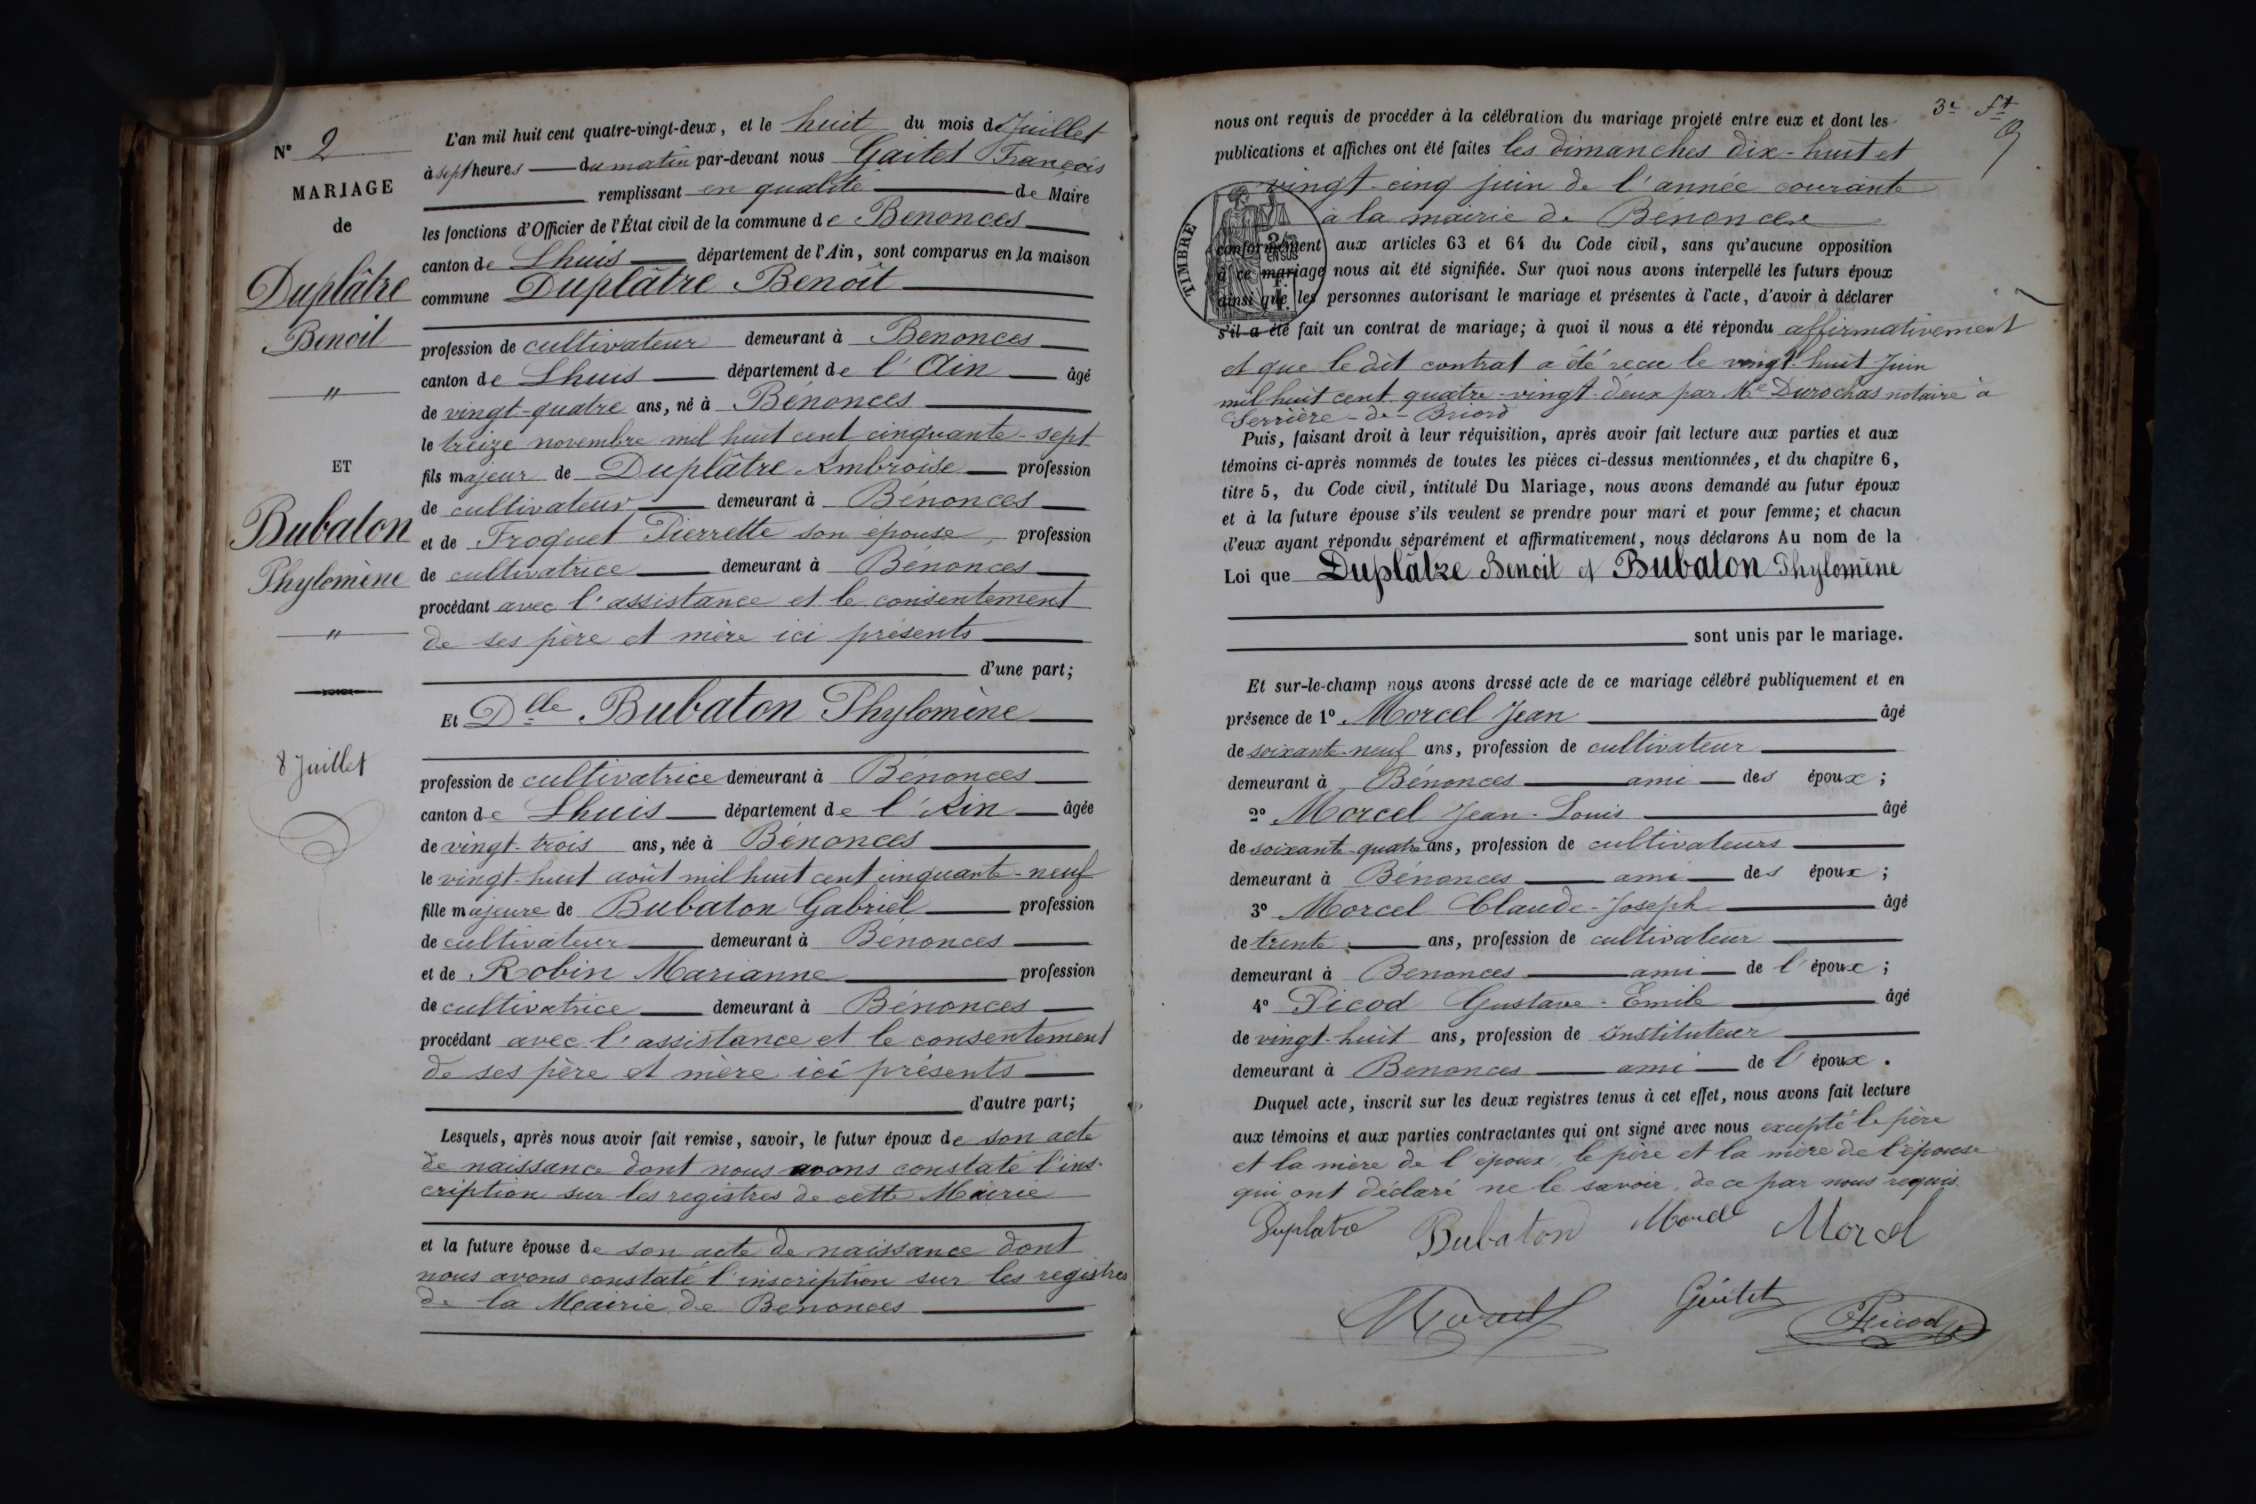 N° 2
MARIAGE
de
Duplâtre
Benoit
"
ET
Bubaton
Phylomène
"
8 Juillet
L'an mil huit cent quatre-vingt-deux, et le huit du mois de Juillet
à sept heures du matin par-devant nous Gaitet François
remplissant en qualité de Maire
les fonctions d'Officier de l'État civil de la commune de Benonces
canton de Lhuis département de l'Ain, sont comparus en la maison
commune Duplâtre Benoît
profession de cultivateur demeurant à Benonces
canton de Lhuis département de l'Ain âgé
de vingt-quatre ans, né à Bénonces
le treize novembre mil huit cent cinquante-sept
fils majeur de Duplâtre Ambroise profession
de cultivateur demeurant à Bénonces
et de Froquet Pierrette son épouse, profession
de cultivatrice demeurant à Bénonces
procédant avec l'assistance et le consentement
de ses père et mère ici présents
d'une part;
Et Dlle Bubaton Phylomène
profession de cultivatrice demeurant à Bénonces
canton de Lhuis département de l'Ain âgée
de vingt-trois ans, née à Bénonces
le vingt-huit août mil huit cent cinquante-neuf
fille majeure de Bubaton Gabriel profession
de cultivateur demeurant à Bénonces
et de Robin Marianne profession
de cultivatrice demeurant à Bénonces
procédant avec l'assistance et le consentement
de ses père et mère ici présents
d'autre part;
Lesquels, après nous avoir fait remise, savoir, le futur époux de son acte
de naissance dont nous avons constaté l'ins-
cription sur les registres de cette Mairie
et la future épouse de son acte de naissance dont
nous avons constaté l'inscription sur les registres
de la Mairie de Benonces
3e ft
nous ont requis de procéder à la célébration du mariage projeté entre eux et dont les
publications et affiches ont été faites les dimanches dix-huit et
vingt-cinq juin de l'année courante
à la mairie de Bénonces
TIMBRE
conformément aux articles 63 et 64 du Code civil, sans qu'aucune opposition
à ce mariage nous ait été signifiée. Sur quoi nous avons interpellé les futurs époux
ainsi que les personnes autorisant le mariage et présentes à l'acte, d'avoir à déclarer
s'il a été fait un contrat de mariage; à quoi il nous a été répondu affirmativement
et que le dit contrat a été reçu le vingt-huit Juin
mil huit cent quatre-vingt-deux par Me Durochas notaire à
Serrière-de-Briord
Puis, faisant droit à leur réquisition, après avoir fait lecture aux parties et aux
témoins ci-après nommés de toutes les pièces ci-dessus mentionnées, et du chapitre 6,
titre 5, du Code civil, intitulé Du Mariage, nous avons demandé au futur époux
et à la future épouse s'ils veulent se prendre pour mari et pour femme; et chacun
d'eux ayant répondu séparément et affirmativement, nous déclarons Au nom de la
Loi que Duplâtre Benoit et Bubaton Phylomène
sont unis par le mariage.
Et sur-le-champ nous avons dressé acte de ce mariage célébré publiquement et en
présence de 1° Morcel Jean âgé
de soixante-neuf ans, profession de cultivateur
demeurant à Bénonces ami des époux;
2° Morcel Jean-Louis âgé
de soixante-quatre ans, profession de cultivateurs
demeurant à Bénonces ami des époux;
3° Morcel Claude-Joseph âgé
de trente ans, profession de cultivateur
demeurant à Benonces ami de l'époux;
4° Picod Gustave-Emile âgé
de vingt-huit ans, profession de Instituteur
demeurant à Benonces ami de l'époux.
Duquel acte, inscrit sur les deux registres tenus à cet effet, nous avons fait lecture
aux témoins et aux parties contractantes qui ont signé avec nous excepté le père
et la mère de l'époux, le père et la mère de l'épouse
qui ont déclaré ne le savoir, de ce par nous requis.
Duplatre Bubaton Morcel Morcel
Morcel Gaitet Picod